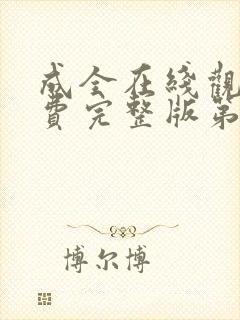 成全在綫觀
費完整版第
博尔博